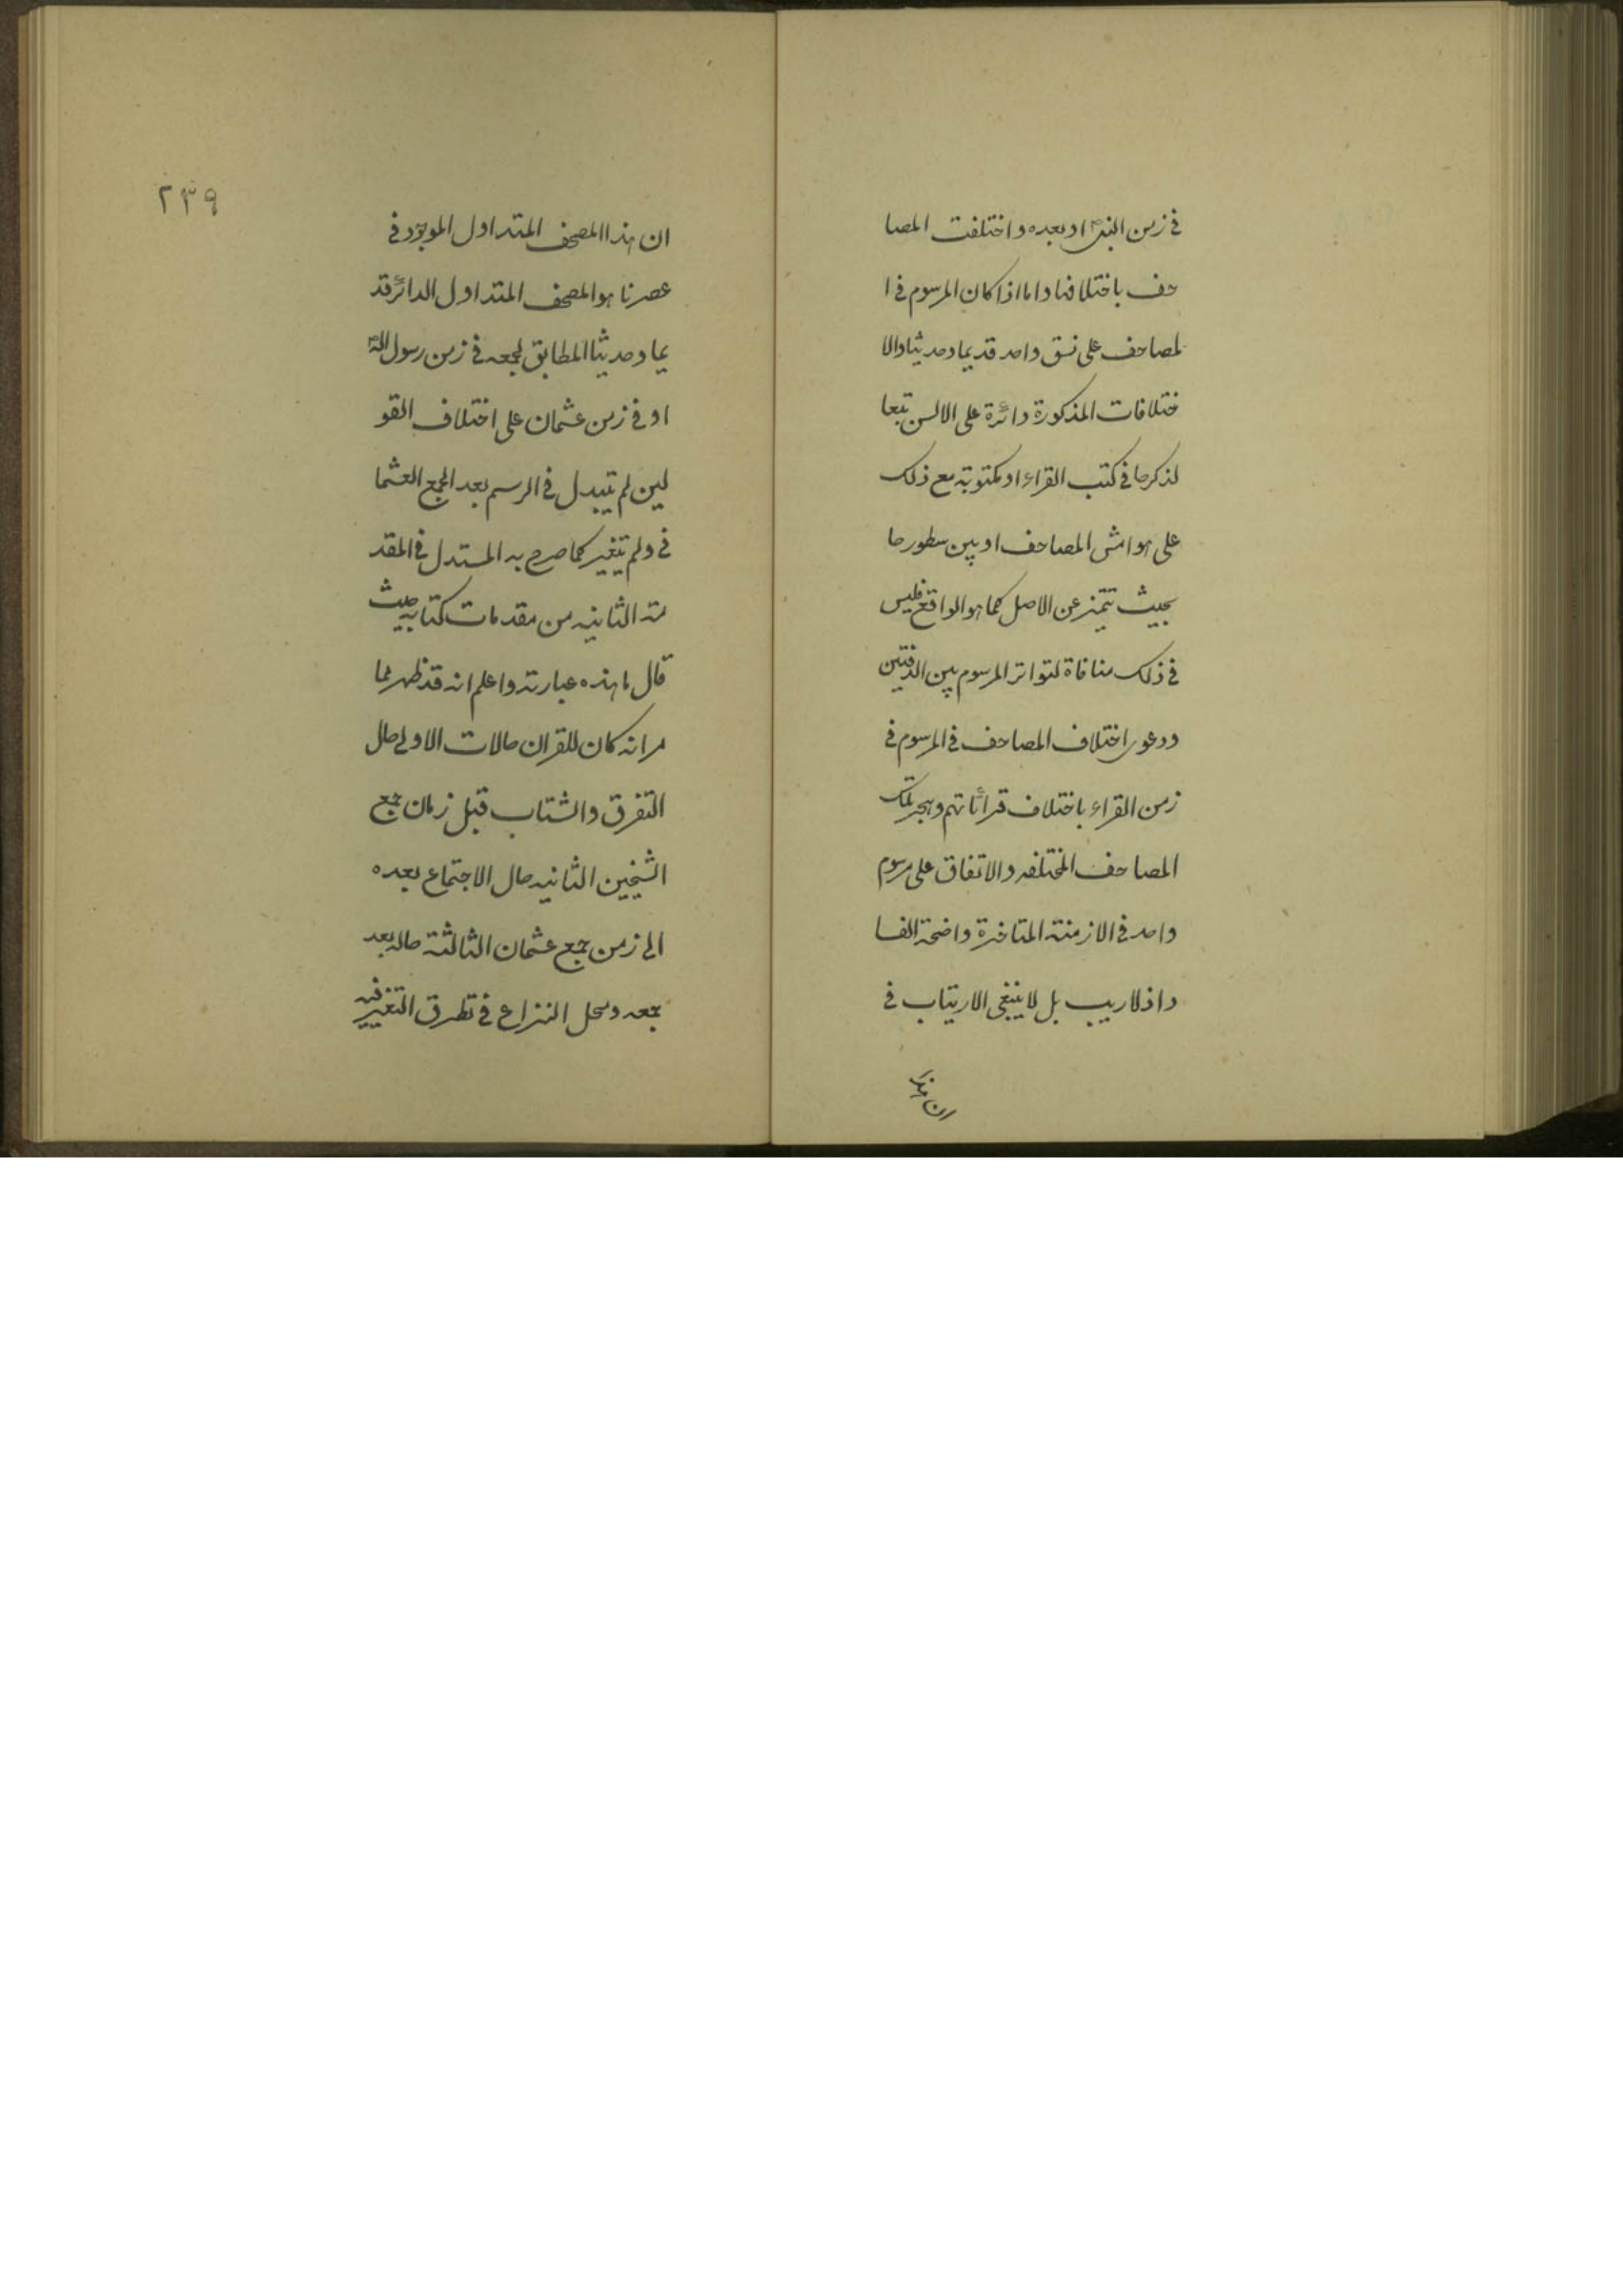 في زمن النبی ص او بعده و اختلفت المصا
حف باختلافها و اما اذا کان المرسوم فی ا
لمصاحف علی نسق واحد قدیما و حدیثا و الا
ختلافات المذکورة دائرة علی الالسن تبعا
لذکرها فی کتب القراء او مکتوبة مع ذلک
علی هوامش المصاحف او بین سطورها
بحیث تتمیز عن الاصل کما هو الواقع فلیس
فی ذلک منافاة لتواتر المرسوم بین الدفتین
و دعوی اختلاف المصاحف فی المرسوم فی
زمن القراء باختلاف قرائاتهم و هجر تلک
المصاحف المختلفه و الاتفاق علی مرسوم
واحد فی الازمنة المتاخرة واضحة الفسا
د اذ لا ریب بل لا ینبغی الارتیاب فی
ان هذا
۲۳۹
ان هذا المصحف المتداول الموجود فی
عصرنا هو المصحف المتداول الدائر قد
یما و حدیثا المطابق لجمعه فی زمن رسول الله ص
او فی زمن عثمان علی اختلاف القو
لین لم یتبدل فی الرسم بعد الجمع العثما
نی و لم یتغیر کما صرح به المستدل فی المقد
مة الثانیه من مقدمات کتابه حیث
قال ما هذه عبارته و اعلم انه قد ظهر مما
مر انه کان للقران حالات الاولی حال
التفرق و الشتات قبل زمان جمع
الشیخین الثانیه حال الاجتماع بعده
الی زمن جمع عثمان الثالثة حاله بعد
جمعه و محل النزاع فی تطرق التغییر فیه